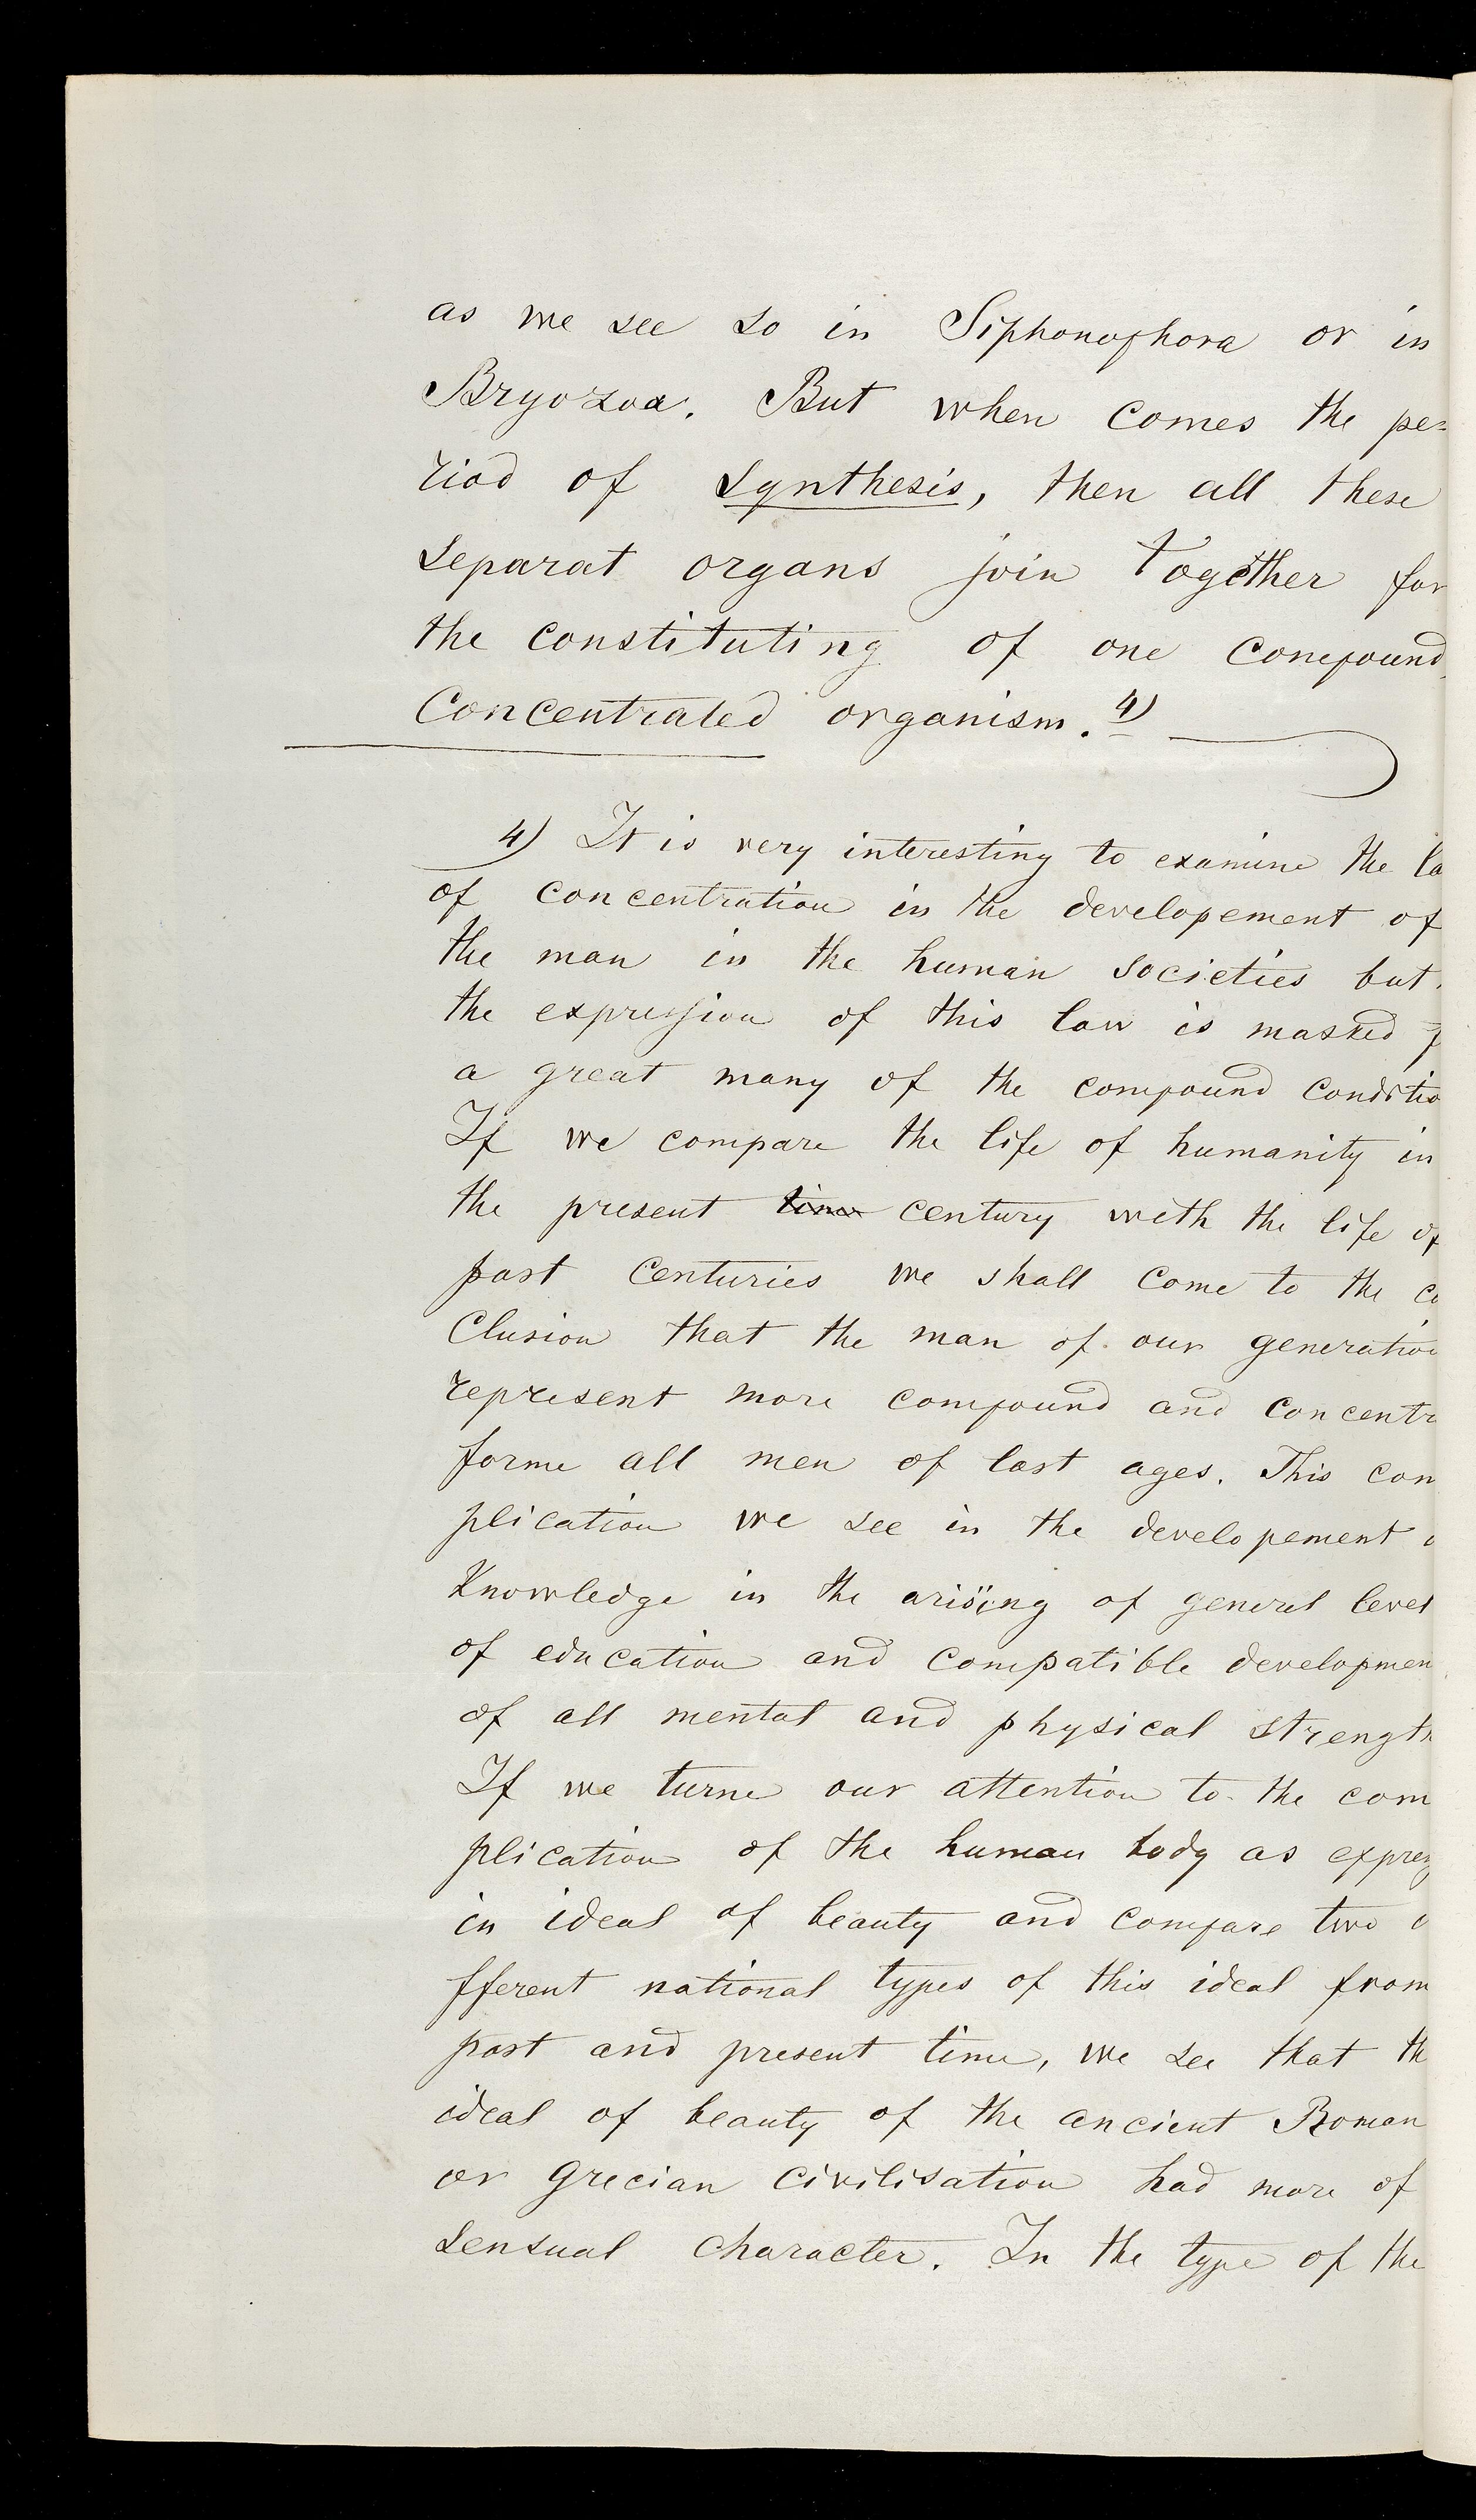 as we see so in Siphonophora or in
Bryozoa. But when comes the pe=
riod of synthesis, then all these
separat organs join together for
the constituting of one compound
concentrated organism. 4)
4) It is very interesting to examine the la
of concentration in the developement of
the man in the human societies but
the expression of this law is masked
a great many of the compound conditio
If we compare the life of humanity in
the present time century with the life of
past centuries we shall come to the co
clusion that the man of our generation
represent more compound and concentr
forme all men of last ages. This com
plication we see in the developement
Knowledge in the arising of general level
of education and compatible developmen
of all mental and physical strength
If we turne our attention to the com
plication of the human body as expres
in ideal of beauty and compare two
fferent national types of this ideal from
past and present time, we see that th
ideal of beauty of the ancient Roman
or grecian civilisation had more of
sensual character. In the type of the